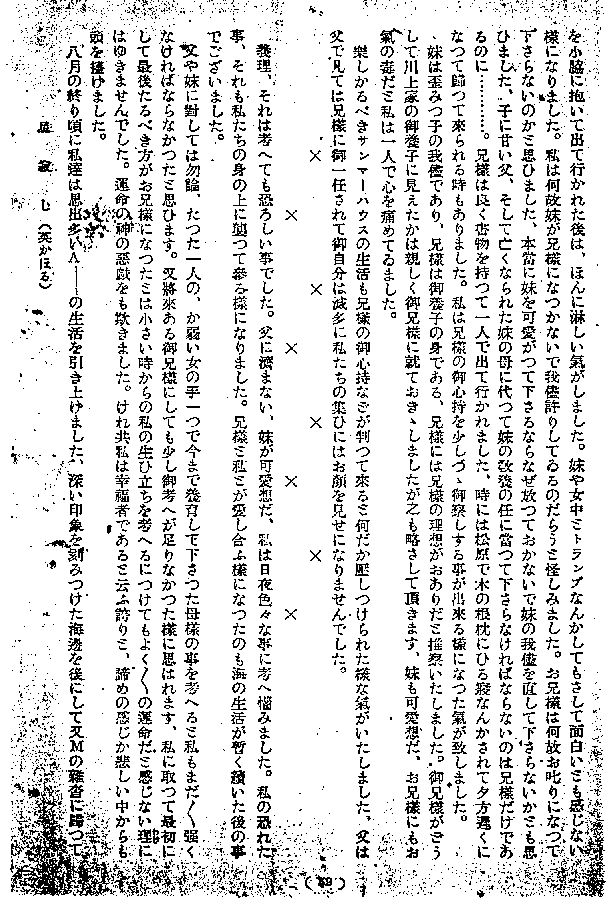 を小脇に抱いて出て行かれた後は、ほんに淋しい氣がしました。妹や女中とトランプなんかしてもさして面白いとも感じない
樣になりました。私は何故妹が兄樣になつかないで我儘許りしてゐるのだらうと怪しみました。お兄樣は何故お叱りになつて
下さらないのかと思ひました、本當に妹を可愛がつて下さるならなぜ放つておかないで妹の我儘を直して下さらないかとも思
ひました、子に甘い父、そして亡くなられた妹の母に代つて妹の敎養の任に當つて下さらなければならないのは兄樣だけであ
るのに…………。兄樣は良く書物を持つて一人で出て行かれました、時には松原で木の根枕にひる寢なんかされて夕方遲くに
なつて歸つて來られる時もありました。私は兄樣の御心持を少しづゝ御察しする事が出來る樣になつた氣が致しました。
妹は歪みつ子の我儘であり、兄樣は御養子の身である、兄樣には兄樣の理想がおありだと推察いたしました。御兄樣がどう
して川上家の御養子に見えたかは親しく御兄樣に就ておきゝしましたが之も略さして頂きます、妹も可愛想だ、お兄樣にもお
氣の毒だと私は一人で心を痛めてゐました。
樂しかるべきサンマーハウスの生活も兄樣の御心持などが判つて來ると何だか壓しつけられた樣な氣がいたしました、父は
父で見ては兄樣に御一任されて御自分は滅多に私たちの集ひにはお顏を見せになりませんでした。
× × × × × × × ×
義理、それは考へても恐ろしい事でした。父に濟まない、妹が可愛想だ、私は日夜色々な事に考へ惱みました。私の恐れた
事、それも私たちの身の上に襲つて參る樣になりました。兄樣と私とが愛し合ふ樣になつたのも海の生活が暫く續いた後の事
でございました。
父や妹に對しては勿論、たつた一人の、か弱い女の手一つで今まで養育して下さつた母樣の事を考へると私もまだ〳〵强く
なければならなかつたと思ひます。又將來ある御兄樣にしても少し御考へが足りなかつた樣に思はれます、私に取つて最初に
して最後たるべき方がお兄樣になつたとは小さい時からの私の生ひ立ちを考へるにつけてもよく〳〵の運命だと感じない理に
はゆきませんでした。運命の神の惡戲をも歎きました。けれ共私は幸福者であると云ふ誇りと、諦めの感じが悲しい中からも
頭を擡げました。
八月の終り頃に私達は思出多いA――の生活を引き上げました、深い印象を刻みつけた海邊を後にして又Mの雜沓に歸つて
(英かほる)